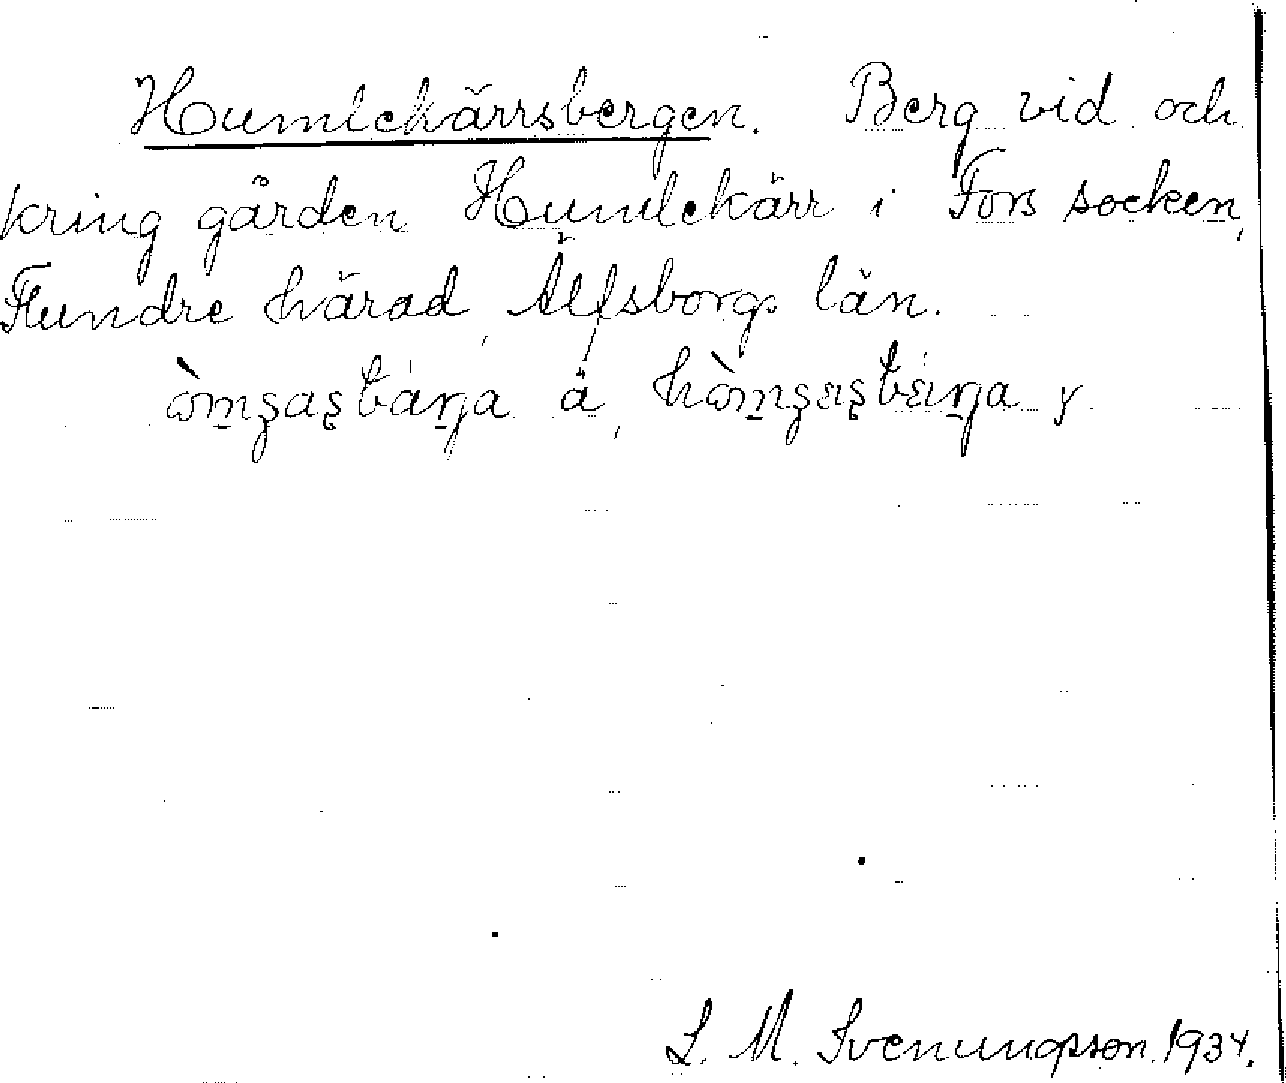 Humlekärrsbergen. Berg vid och
kring gården Humlekärr i Fors socken,
Flundre härad, Älfsborgs län.
ä, y
S. M. Svenungsson 1934.